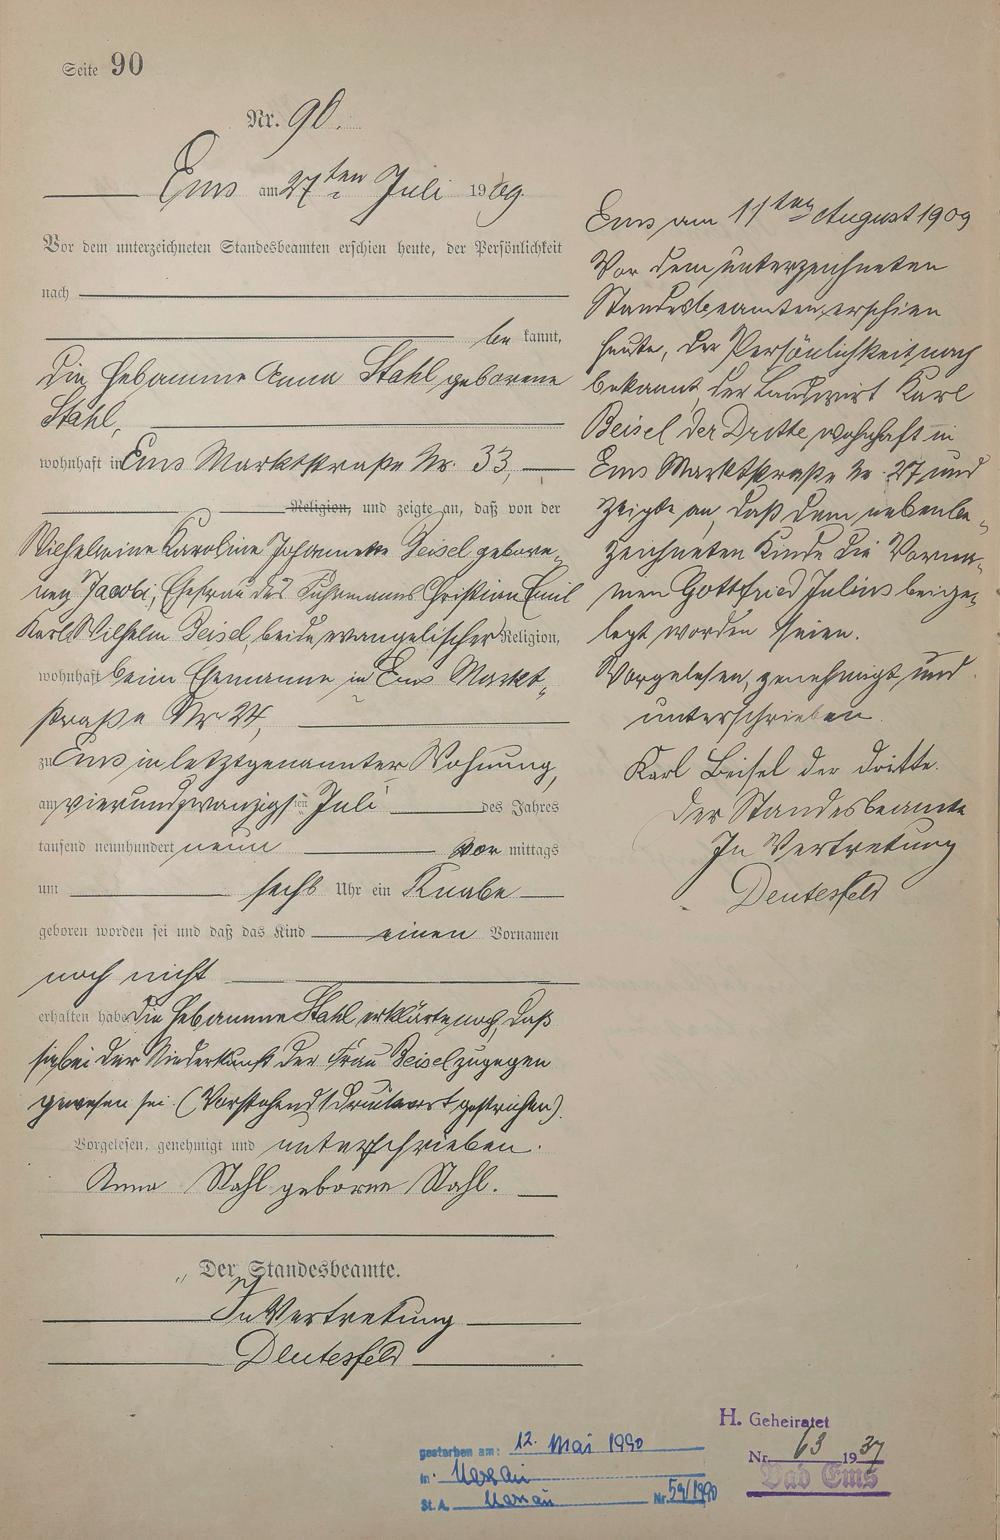 Seite 90
Nr. 90.
Ems am 27ten Juli 1909.
Vor dem unterzeichneten Standesbeamten erschien heute, der Persönlichkeit
nach
be kannt,
die Hebamme Anna Stahl geborene
Stahl,
wohnhaft in Ems Marktstraße Nr. 33,
Religion, und zeigte an, daß von der
Wilhelmine Karoline Johannette Beisel gebore-
nen Jacobi, Ehefrau des Fuhrmanns Christian Emil
Karl Wilhelm Beisel, beide evangelischer Religion,
wohnhaft beim Ehemanne in Ems Markt-
straße Nr
zu Ems in letztgenannter Wohnung,
am vierundzwanzigsten Juli des Jahres
tausend neunhundert neun vor mittags
um sechs Uhr ein Knabe
geboren worden sei und daß das Kind einen Vornamen
noch nicht
erhalten habe. Die Hebamme Stahl erklärte noch, daß
sie bei der Niederkunft der Frau Beisel zugegen
gewesen sei. (Vorstehend 1 Druckwort gestrichen).
Vorgelesen, genehmigt und unterschrieben.
Anna Stahl geborene Stahl.
Der Standesbeamte.
In Vertretung
Deutesfeld
Ems am 11ten August 1909
Vor dem unterzeichneten
Standesbeamten erschien
heute, der Persönlichkeit nach
bekannt, der Landwirt Karl
Beisel der Dritte, wohnhaft in
Ems Marktstraße Nr. 27 und
zeigte an, daß dem nebenbe-
zeichneten Kinde die Vorna-
men Gottfried Julius beige-
legt worden seien.
Vorgelesen, genehmigt und
unterschrieben.
Karl Beisel der dritte.
Der Standesbeamte
In Vertretung
Deutesfeld
gestorben am: 12. Mai 1990
in: Nassau
St. A. Nassau Nr. 59/1990
H. Geheiratet
Nr. 63 1937
Bad Ems